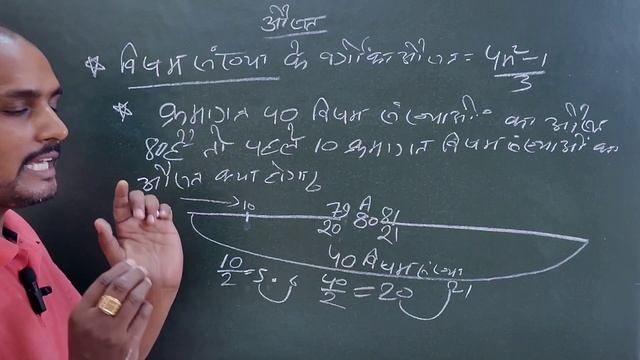 औसत
* विषम संख्या के वर्गों का औसत = 4n²-1 / 3
* क्रमागत 40 विषम संख्याओं का औसत
80 है तो पहले 10 क्रमागत विषम संख्याओं का
औसत क्या होगा
10
79 A 81
20 80 21
40 विषम संख्या
10/2 = 5 . 6 40/2 = 20 21